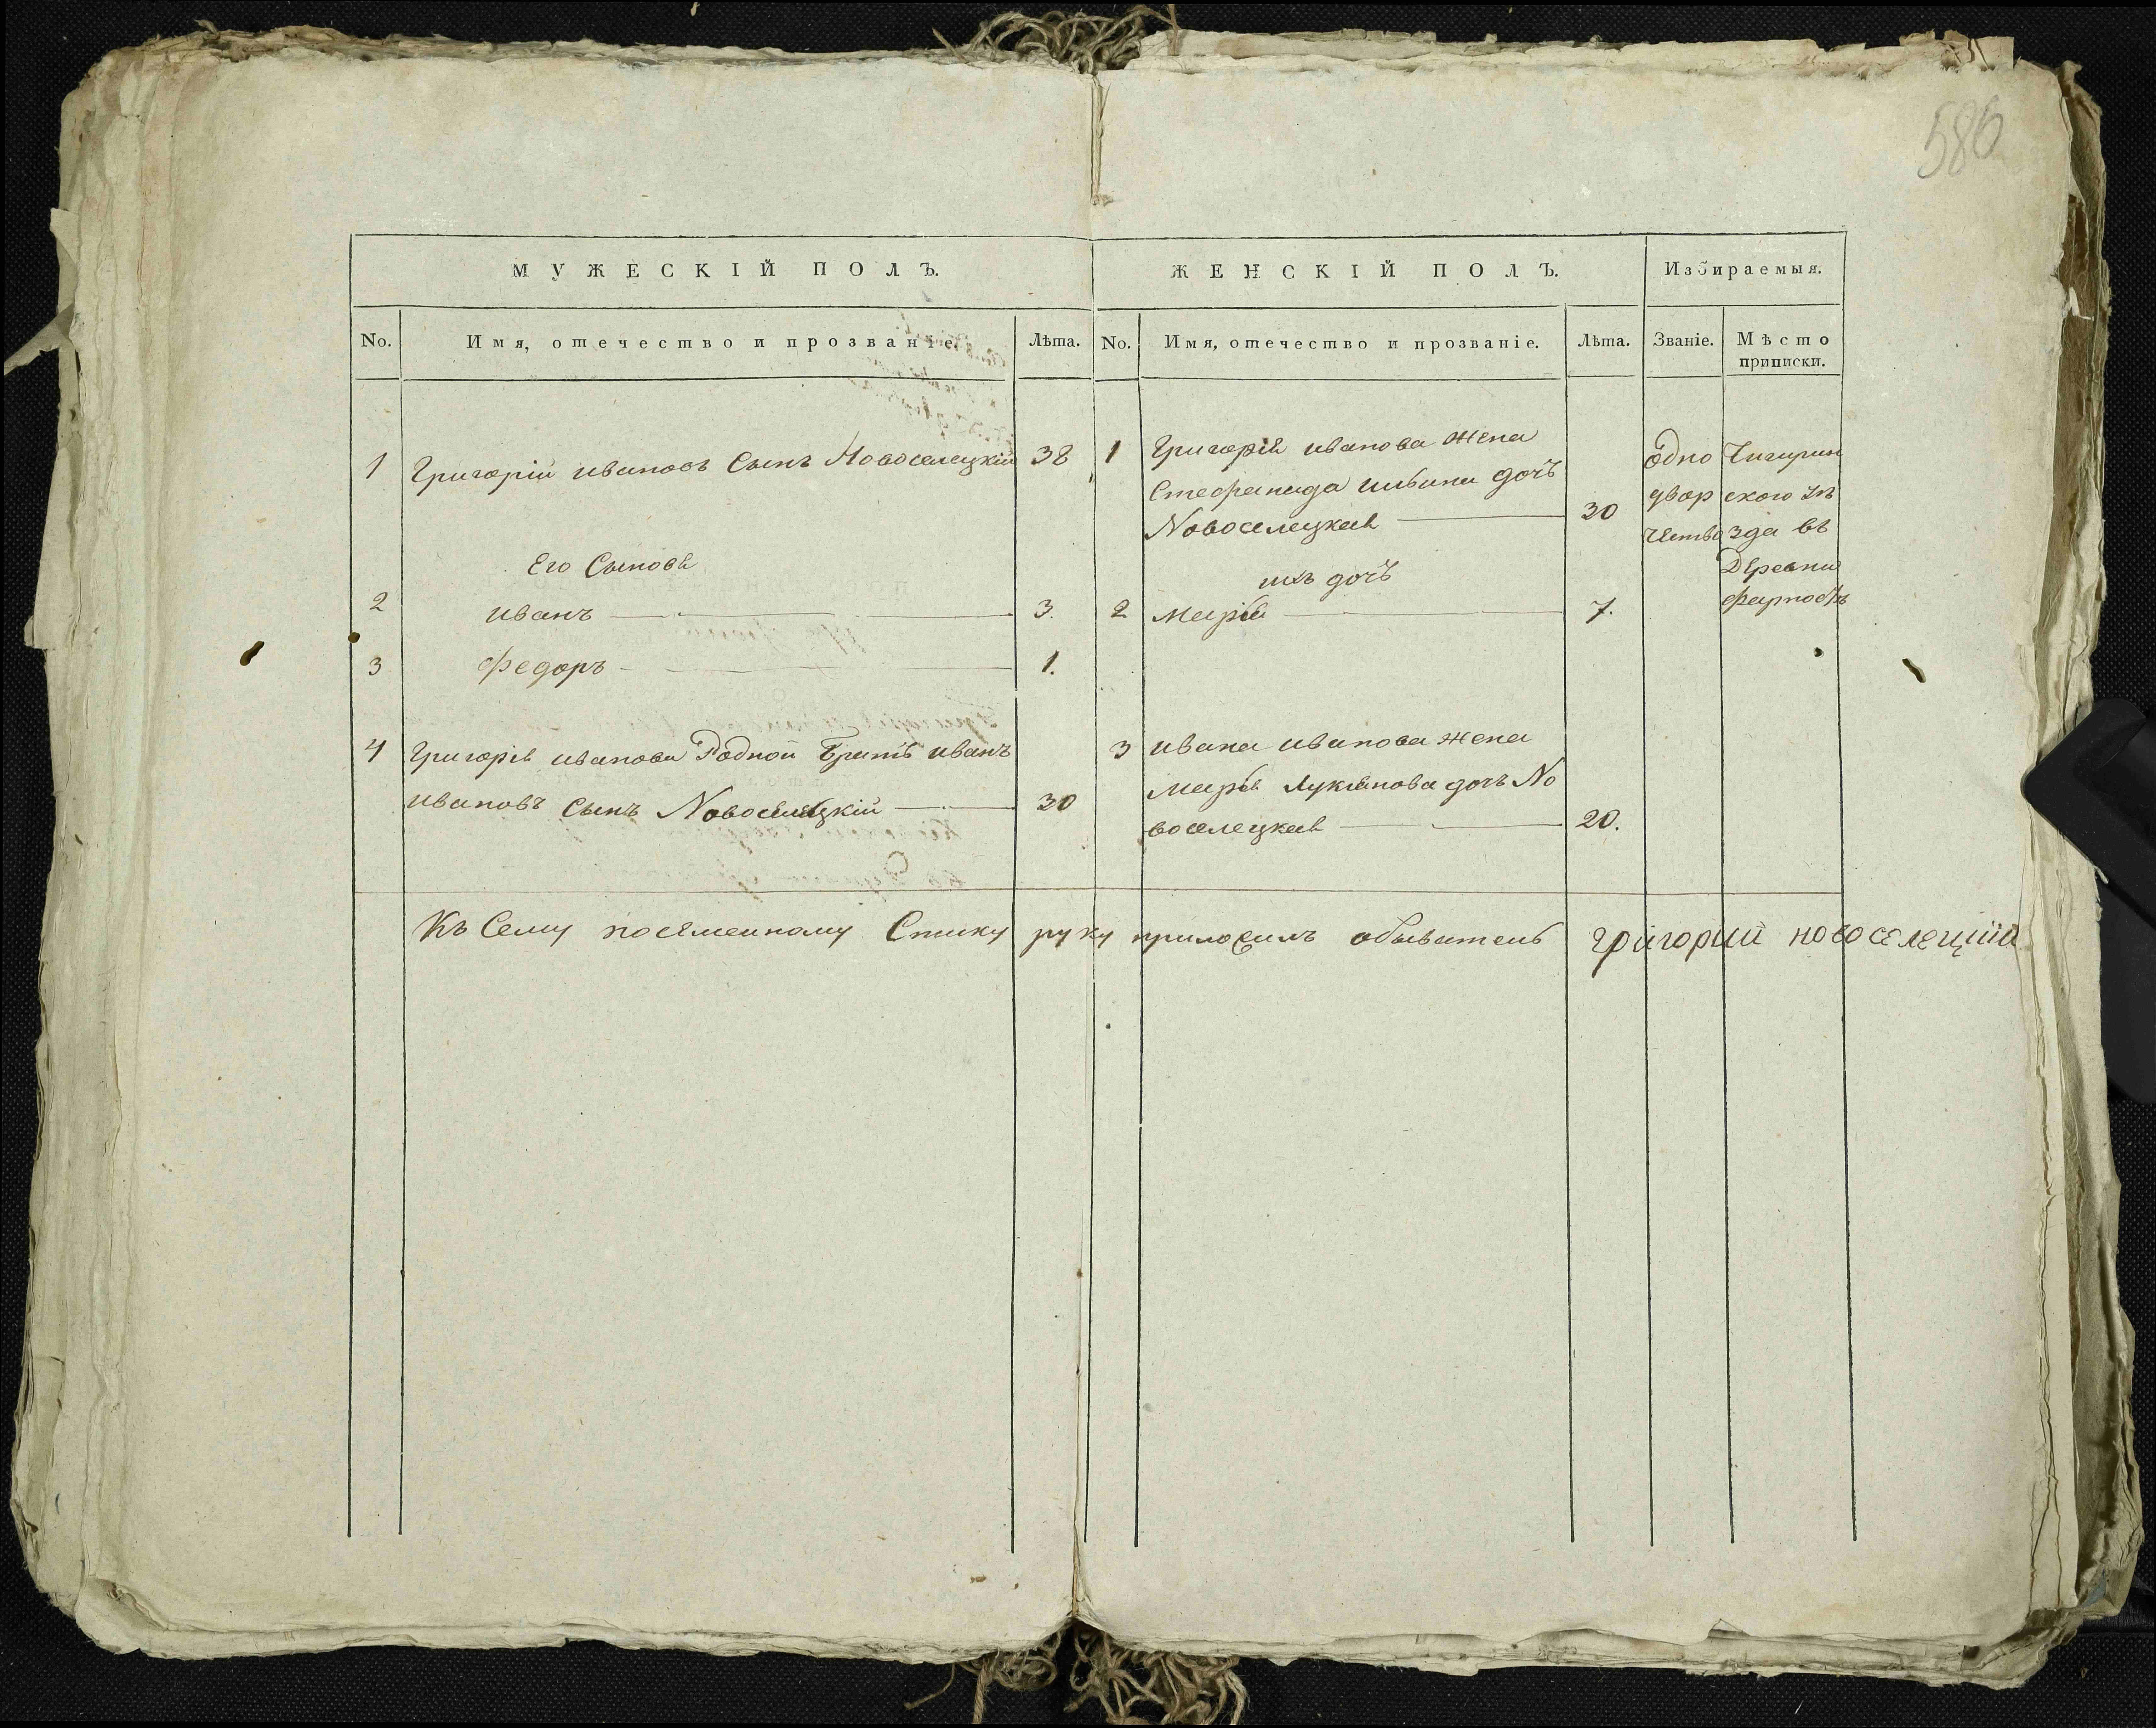 586
МУЖЕСКІЙ ПОЛЪ.
ЖЕНСКІЙ ПОЛЪ.
Избираемыя.
No. Имя, отечество и прозваніе. Лѣта.
No. Имя, отечество и прозваніе. Лѣта.
Званіе. Мѣсто
приписки.
1 Григорій ивановъ Сынъ Новоселецкій 38
Его Сыновя
2 иванъ 3.
3 федоръ 1.
4 Григорія иванова Родной братъ иванъ
ивановъ Сынъ Новоселецкій 30
1 Григорія иванова жена
Стефанида ильина дочъ
Новоселецкая 30
ихъ дочъ
2 Марія 7.
3 ивана иванова жена
Марія Лукіянова дочъ Но
воселецкая 20.
одно
двор
чество
Чигирин
ского уѣ
зда въ
Деревни
Къ Сему посеменному Списку руку приложилъ обыватель григорий новоселецкий